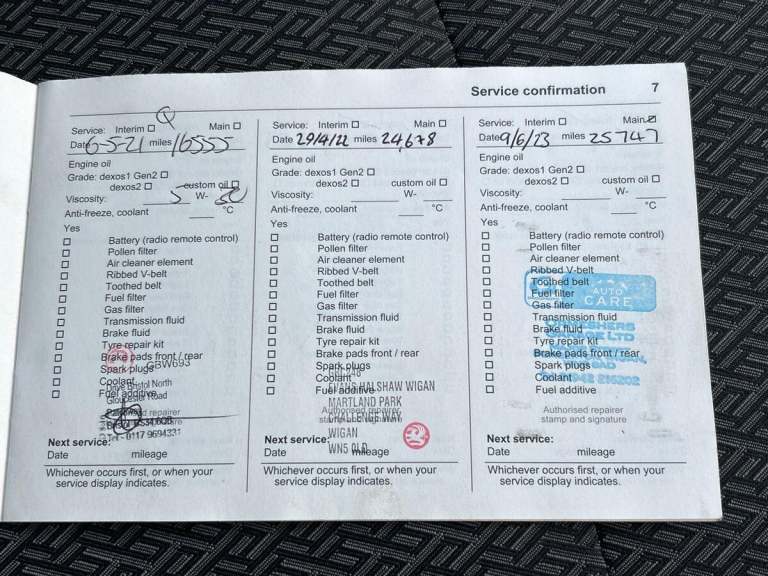 Service confirmation 7
Service: Interim Main
Date 6-5-21 miles 16555
Engine oil
Grade: dexos1 Gen2
dexos2 custom oil
Viscosity: 5 W- 30
Anti-freeze, coolant °C
Yes
Battery (radio remote control)
Pollen filter
Air cleaner element
Ribbed V-belt
Toothed belt
Fuel filter
Gas filter
Transmission fluid
Brake fluid
Tyre repair kit
Brake pads front / rear
Spark plugs GBW693
Coolant
Fuel additive
Bristol North
Gloucester Road
Tel - 0117 9694331
Next service:
Date mileage
Whichever occurs first, or when your
service display indicates.
Service: Interim Main
Date 29/4/22 miles 24,678
Engine oil
Grade: dexos1 Gen2
dexos2 custom oil
Viscosity: W-
Anti-freeze, coolant °C
Yes
Battery (radio remote control)
Pollen filter
Air cleaner element
Ribbed V-belt
Toothed belt
Fuel filter
Gas filter
Transmission fluid
Brake fluid
Tyre repair kit
Brake pads front / rear
Spark plugs
Coolant
Fuel additive
EVANS HALSHAW WIGAN
MARTLAND PARK
Authorised repairer
CHALLENGE WAY
WIGAN
WN5 0LD
Next service:
Date mileage
Whichever occurs first, or when your
service display indicates.
Service: Interim Main
Date 9/6/23 miles 25747
Engine oil
Grade: dexos1 Gen2
dexos2 custom oil
Viscosity: W-
Anti-freeze, coolant °C
Yes
Battery (radio remote control)
Pollen filter
Air cleaner element
Ribbed V-belt
Toothed belt
Fuel filter
AUTO
CARE
Gas filter
Transmission fluid
Brake fluid
GARAGE LTD
Tyre repair kit
Brake pads front / rear
Spark plugs
Coolant
Fuel additive
Authorised repairer
stamp and signature
Next service:
Date mileage
Whichever occurs first, or when your
service display indicates.